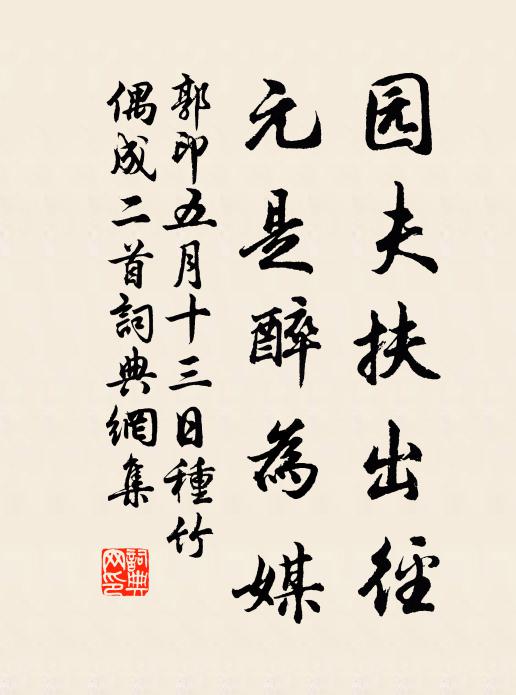 园夫扶出径
元是醉為媒
郭印五月十三日種竹
偶成二首詞典網集
詞典
网印